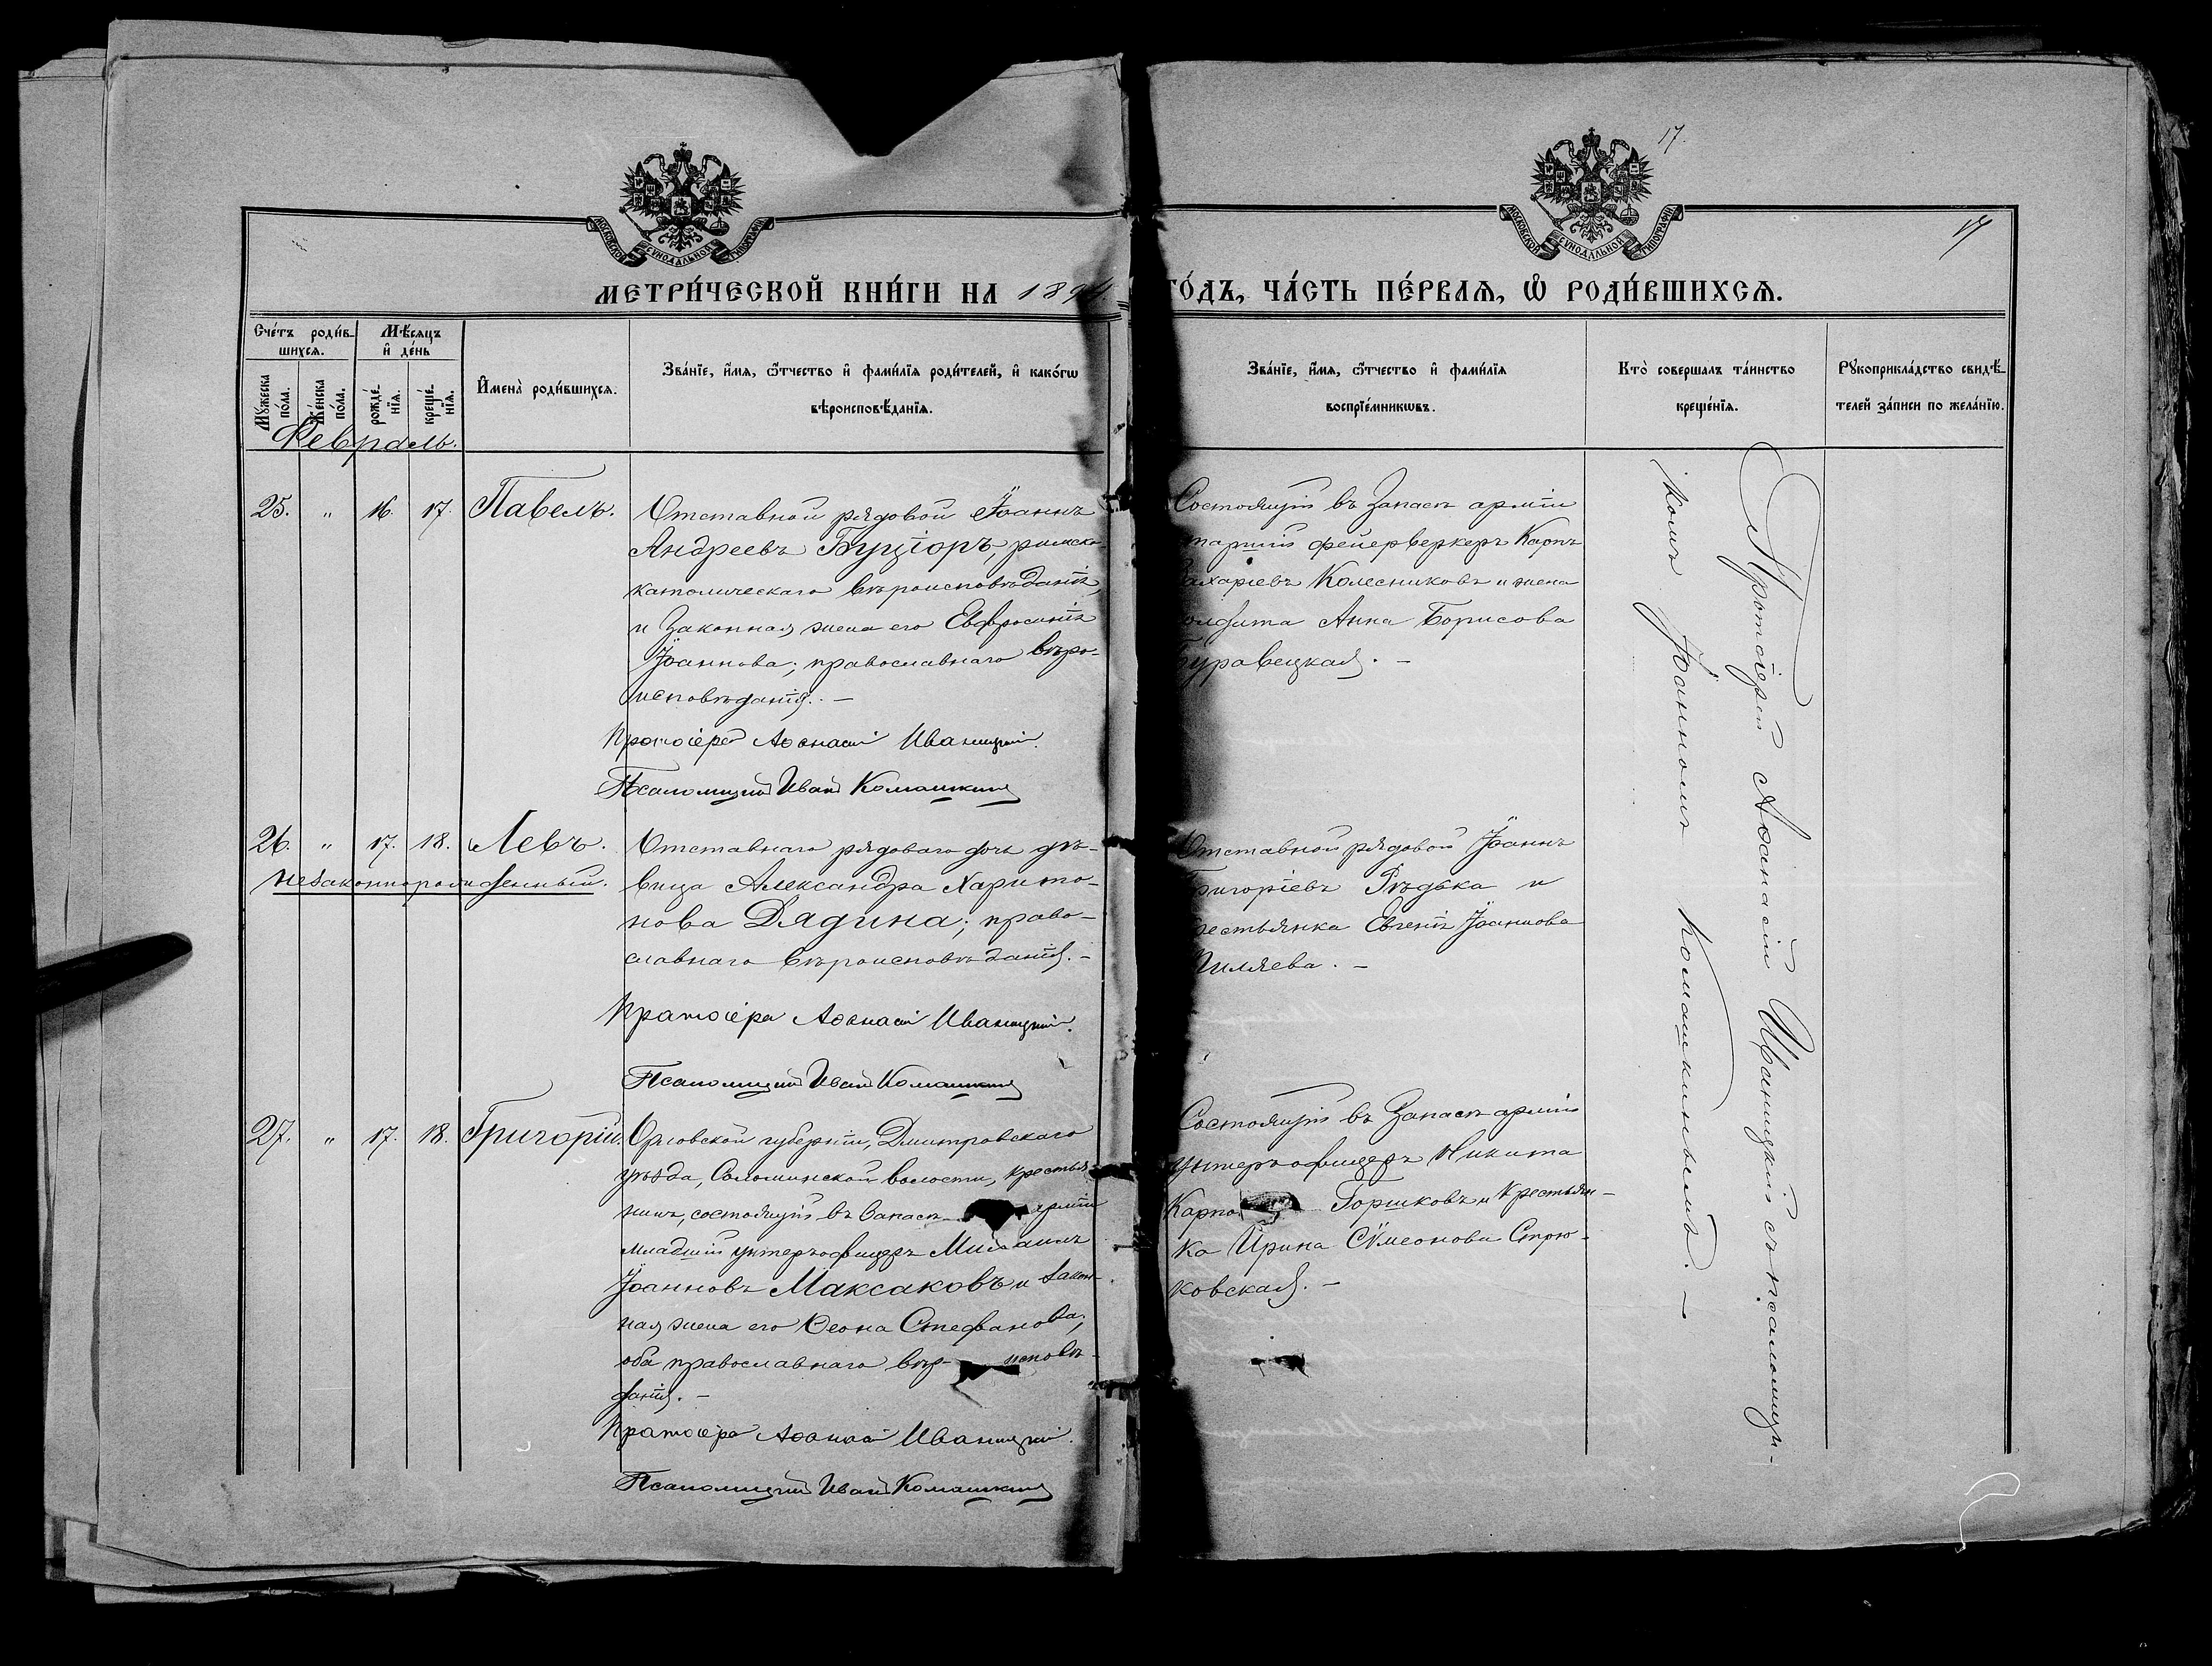 17.
17
МОСКОВСКОЙ СѴНОДАЛЬНОЙ ТИПОГРАФІИ
МОСКОВСКОЙ СѴНОДАЛЬНОЙ ТИПОГРАФІИ
МЕТРИ́ЧЕСКОЙ КНИ́ГИ НА 189
ГО́ДЪ, ЧА́СТЬ ПЕ́РВАЯ, Ѡ РОДИ́ВШИХСЯ.
Сче́тъ роди́в-
шихся.
Мꙋ́жеска по́ла.
Же́нска по́ла.
Мѣ́сяцъ и҆ де́нь
рожде́нїя.
креще́нїя.
И҆мена̀ роди́вшихся.
Зва́нїе, и҆́мя, ѻ҆́тчество и҆ фами́лїя роди́телей, и҆ како́гѡ
вѣроисповѣ́данїя.
Зва́нїе, и҆́мя, ѻ҆́тчество и҆ фами́лїя
воспрїе́мникѡвъ.
Кто̀ соверша́лъ та́инство
креще́нїя.
Рꙋкоприкла́дство свидѣ́-
телей за́писи по жела́нїю.
Февраль.
25. " 16. 17. Павелъ.
Отставной рядовой Іоаннъ
Андреевъ Буціоръ, римско-
католическаго вѣроисповѣданія,
и законная жена его Евфросинія
Іоаннова; православнаго вѣро-
исповѣданія. —
Протоіерей Аѳанасій Иваницкій.
Псаломщикъ Иванъ Комашкинъ
Состоящій въ запасѣ арміи
старшій фейерверкеръ Карпъ
Захаріевъ Колесниковъ и жена
солдата Анна Борисова
Буравецкая. —
26. " 17. 18. Левъ.
Незаконнорожденный.
Отставнаго рядоваго дочь дѣ-
вица Александра Харито-
нова Дядина; право-
славнаго вѣроисповѣданія. —
Протоіерей Аѳанасій Иваницкій.
Псаломщикъ Иванъ Комашкинъ
Отставной рядовой Іоаннъ
Григоріевъ Рѣдька и
крестьянка Евгенія Іоаннова
27. " 17. 18. Григорій.
Орловской губерніи, Дмитровскаго
уѣзда, Соломинской волости, крестья-
нинъ, состоящій въ запасѣ арміи
младшій унтеръ-офицеръ Михаилъ
Іоанновъ Максаковъ и закон-
ная жена его Ѳеона Стефанова;
оба православнаго вѣр исповѣ-
данія. —
Протоіерей Аѳанасій Иваницкій.
Псаломщикъ Иванъ Комашкинъ
Состоящій въ запасѣ арміи
унтеръ-офицеръ Никита
Карпо Горшковъ и крестьян-
ка Ирина Сѵмеонова Стрю-
ковская. —
Протоіерей Аѳанасій Иваницкій съ псаломщи-
комъ Іоанномъ Комашкинымъ. —